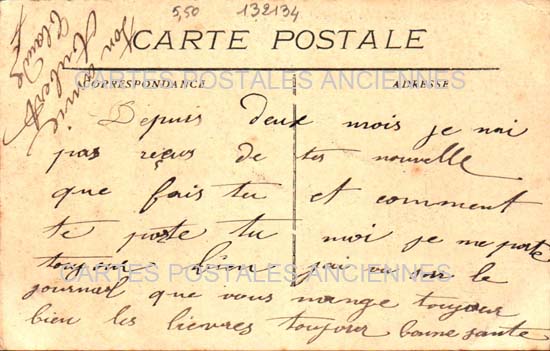 5,50 132134
CARTE POSTALE
CARTES POSTALES ANCIENNES
CORRESPONDANCE ADRESSE
Depuis deux mois je nai
pas reçus de tes nouvelle
que fais tu et comment
te porte tu moi je me porte
toujours bien jai vu sur le
CARTES POSTALES ANCIENNES
journal que vous mange toujour
bien les lievres toujour bonne sante
Ton amie
Claude